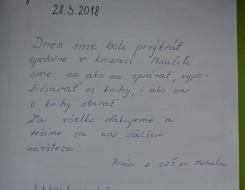 28.3.2018
Dnes sme boli prvýkrát
spoločne v knižnici. Naučili
sme sa ako sa správať, vypo-
žičiavať si knihy, i ako sa
o knihy starať.
Za všetko ďakujeme a
tešíme sa na ďalšiu
návštevu.
Prváci z CZŠ sv. Michala